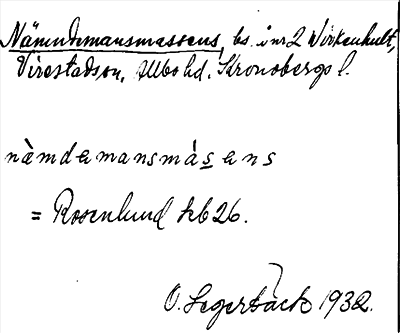 Nämndemansmassens, bs. å nr 2 Virkenhult,
Virestadssn, Allbo hd. Kronobergs l.
nämdamansmásens
= Rosenlund kb 26.
O. Segerbäck 1932.